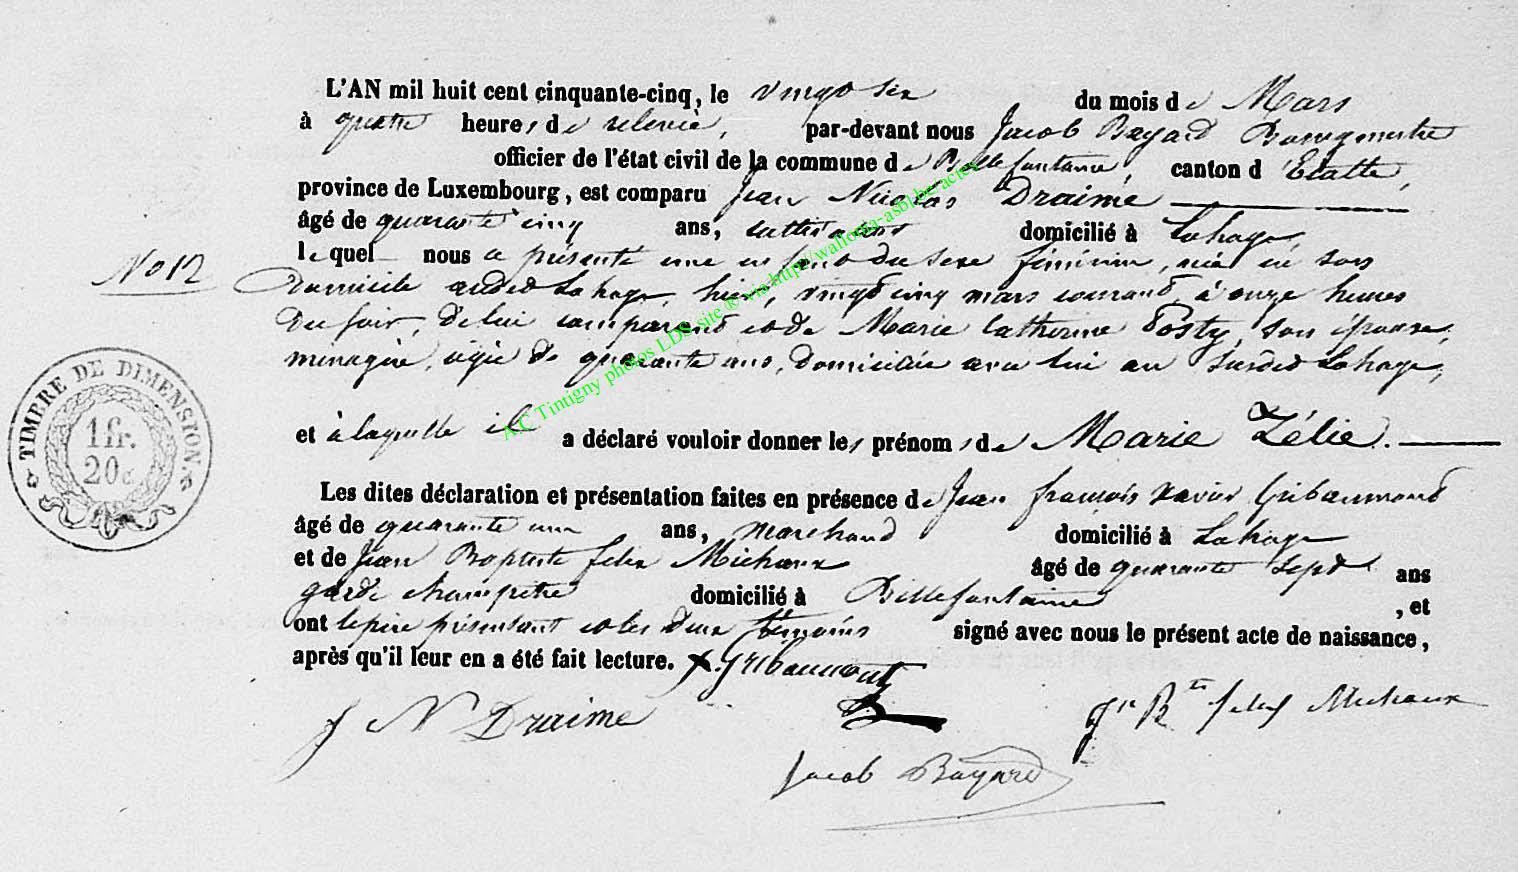 L'AN mil huit cent cinquante-cinq, le vingt six du mois de Mars
à quatre heures de relevée, par-devant nous Jacob Bayard Bourgmestre
officier de l'état civil de la commune de Bellefontaine, canton d'Etalle,
province de Luxembourg, est comparu Jean Nicolas Draime
âgé de quarante cinq ans, cultivateur domicilié à Lahage,
lequel nous a présenté une enfant du sexe féminin, née en son
No 12
domicile audit Lahage, hier, vingt cinq mars courant à onze heures
du soir, de lui comparant et de Marie Catherine Posty, son épouse,
ménagère, agée de quarante ans, domiciliée avec lui au susdit Lahage,
et à laquelle il a déclaré vouloir donner les prénoms de Marie Zélie.
TIMBRE DE DIMENSION.
1 fr.
20 c
Les dites déclaration et présentation faites en présence de Jean françois Xavier Gribaumont
âgé de quarante un ans, marchand domicilié à Lahage
et de Jean Baptiste felix Michaux âgé de quarante sept ans
garde champetre domicilié à Bellefontaine, et
ont le père présentant et les deux témoins signé avec nous le présent acte de naissance,
après qu'il leur en a été fait lecture. X. Gribaumont
J N Draime Jn Bte felix Michaux
Jacob Bayard
A.C Tintigny photos LDS site ® via http://wallonia-asbl.be/actes